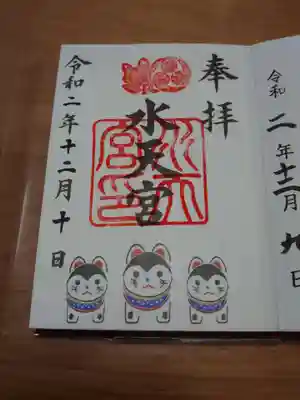 奉拝
水天宮
水天宮印
令和二年十二月十日
令和二年十二月九日